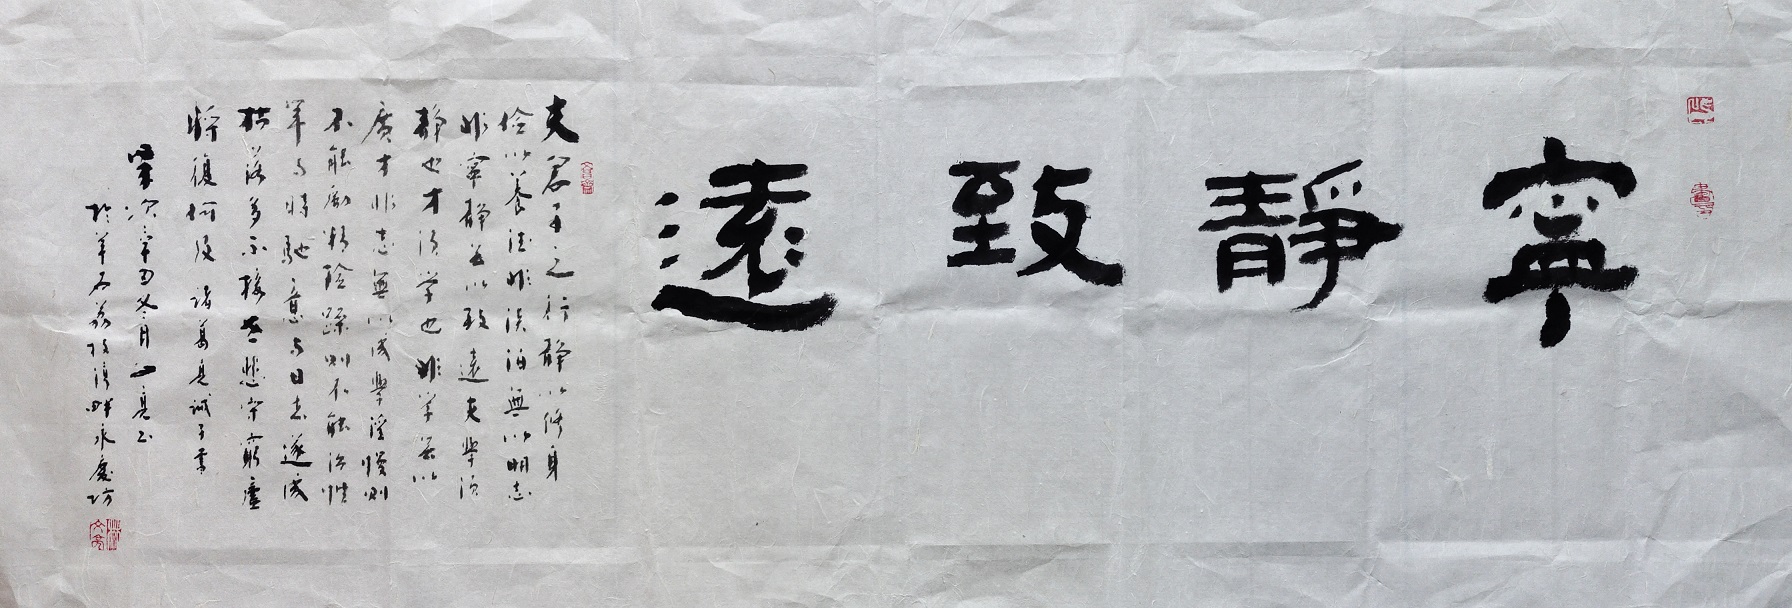 寧靜致遠
夫君子之行靜以修身
儉以養德非淡泊無以明志
非寧靜無以致遠夫學須
靜也才須學也非學無以
廣才非志無以成學淫慢則
不能勵精險躁則不能治性
年与時馳意与日去遂成
枯落多不接世悲守窮廬
將復何及 諸葛亮誡子書
歲次辛丑冬月
於羊石荔枝湾畔永慶坊